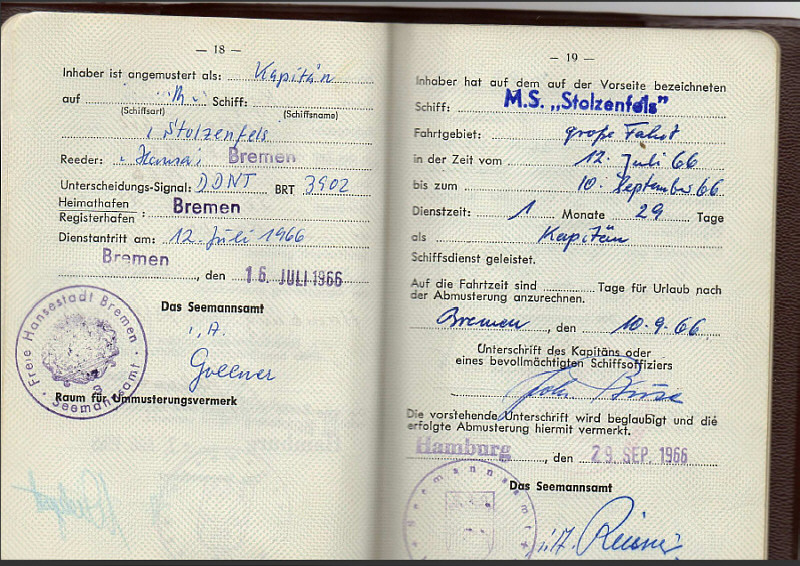 — 18 —
Inhaber ist angemustert als: Kapitän
auf M. Schiff:
(Schiffsart) (Schiffsname)
"Stolzenfels
Reeder: "Hansa" Bremen
Unterscheidungs-Signal: DDNT BRT 3902
Heimathafen
Registerhafen : Bremen
Dienstantritt am: 12. Juli 1966
Bremen, den 16. JULI 1966
Das Seemannsamt
i. A.
Freie Hansestadt Bremen
Seemannsamt
Raum für Ummusterungsvermerk
— 19 —
Inhaber hat auf dem auf der Vorseite bezeichneten
Schiff: M.S. „Stolzenfels"
Fahrtgebiet: große Fahrt
in der Zeit vom 12. Juli 66
bis zum 10. September 66
Dienstzeit: 1 Monate 29 Tage
als Kapitän
Schiffsdienst geleistet.
Auf die Fahrtzeit sind Tage für Urlaub nach
der Abmusterung anzurechnen.
Bremen, den 10.9.66
Unterschrift des Kapitäns oder
eines bevollmächtigten Schiffsoffiziers
Die vorstehende Unterschrift wird beglaubigt und die
erfolgte Abmusterung hiermit vermerkt.
Hamburg, den 29. SEP. 1966
Das Seemannsamt
Seemannsamt
i. A.